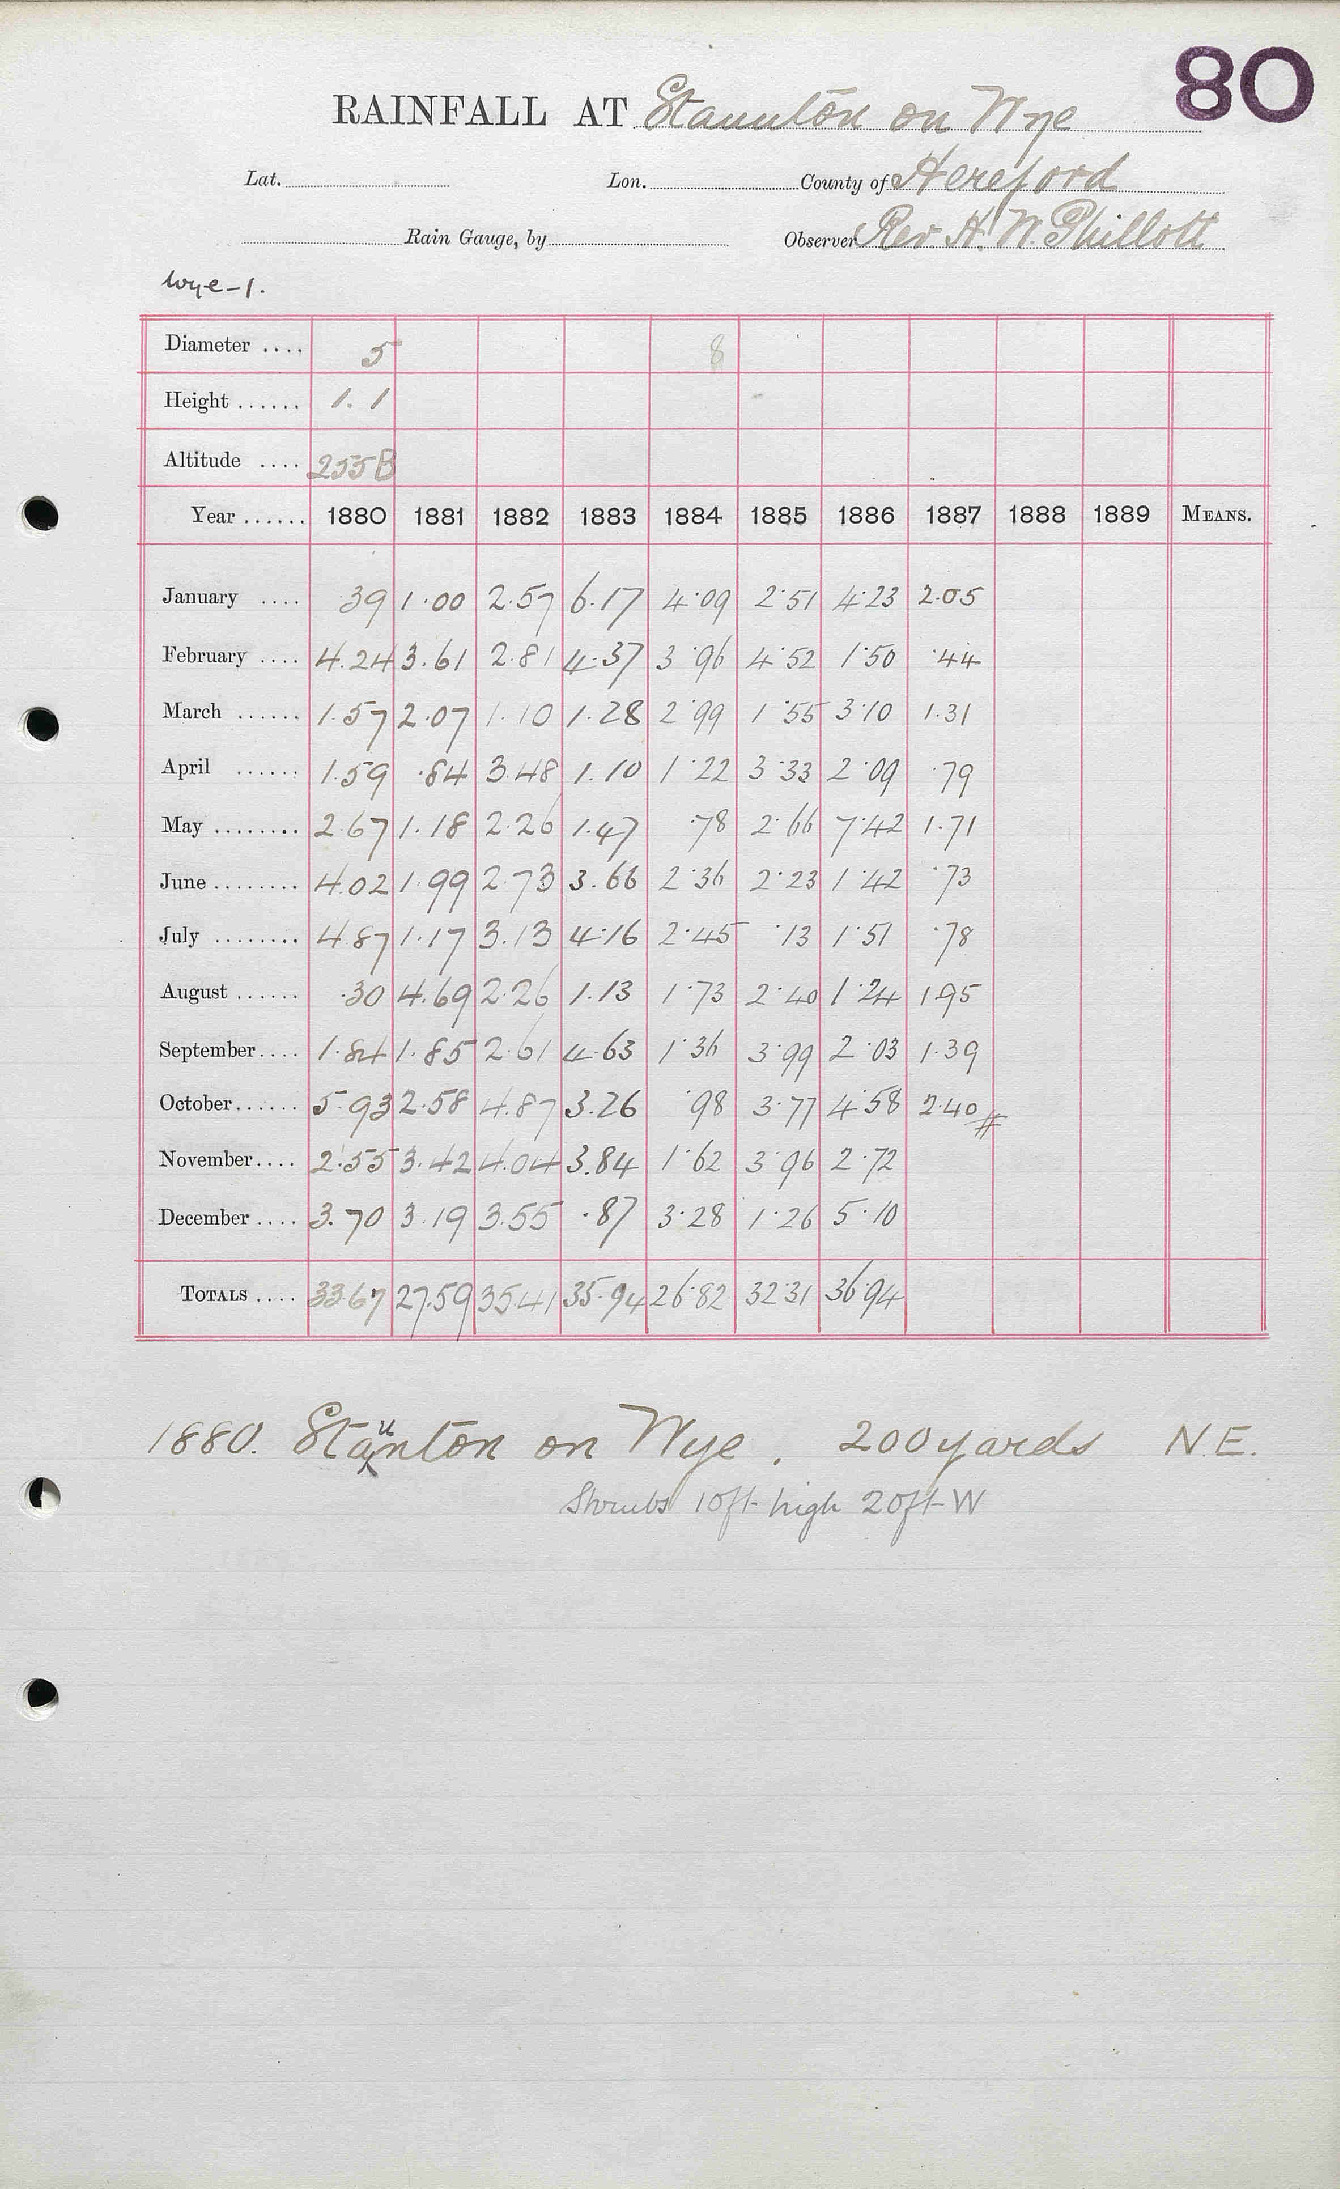 80
RAINFALL AT Staunton on Wye
Lat. Lon. County of Hereford
Rain Gauge, by Observer Rev H. W. Phillott
Wye-1.
Diameter .... 5 8
Height ...... 1.1
Altitude .... 255 B
Year ...... 1880 1881 1882 1883 1884 1885 1886 1887 1888 1889 MEANS.
January .... .39 1.00 2.57 6.17 4.09 2.51 4.23 2.05
February .... 4.24 3.61 2.81 4.37 3.96 4.52 1.50 .44
March ...... 1.57 2.07 1.10 1.28 2.99 1.55 3.10 1.31
April ...... 1.59 .84 3.48 1.10 1.22 3.33 2.09 .79
May ........ 2.67 1.18 2.26 1.47 .78 2.66 7.42 1.71
June ........ 4.02 1.99 2.73 3.66 2.36 2.23 1.42 .73
July ........ 4.87 1.17 3.13 4.16 2.45 .13 1.51 .78
August ...... .30 4.69 2.26 1.13 1.73 2.40 1.24 1.95
September.... 1.84 1.85 2.61 4.63 1.36 3.99 2.03 1.39
October...... 5.93 2.58 4.87 3.26 .98 3.77 4.58 2.40 #
November.... 2.55 3.42 4.04 3.84 1.62 3.96 2.72
December .... 3.70 3.19 3.55 .87 3.28 1.26 5.10
TOTALS .... 33.67 27.59 35.41 35.94 26.82 32.31 36.94
1880. Staunton on Wye. 200 yards N.E.
Shrubs 10ft high 20ft W